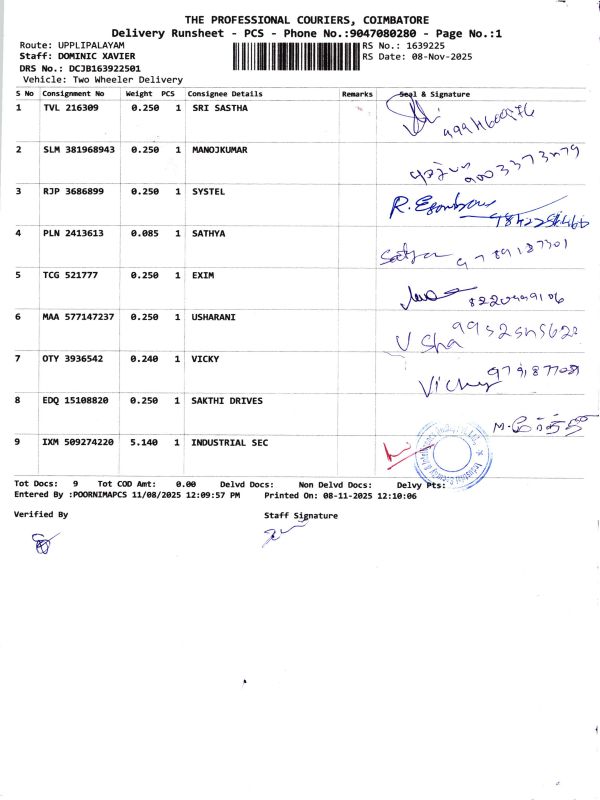 THE PROFESSIONAL COURIERS, COIMBATORE
Delivery Runsheet - PCS - Phone No.:9047080280 - Page No.:1
Route: UPPLIPALAYAM RS No.: 1639225
Staff: DOMINIC XAVIER RS Date: 08-Nov-2025
DRS No.: DCJB163922501
Vehicle: Two Wheeler Delivery
S No Consignment No Weight PCS Consignee Details Remarks Seal & Signature
1 TVL 216309 0.250 1 SRI SASTHA
2 SLM 381968943 0.250 1 MANOJKUMAR
3 RJP 3686899 0.250 1 SYSTEL
4 PLN 2413613 0.085 1 SATHYA Sathya
5 TCG 521777 0.250 1 EXIM
6 MAA 577147237 0.250 1 USHARANI Usha
7 OTY 3936542 0.240 1 VICKY Vicky
8 EDQ 15108820 0.250 1 SAKTHI DRIVES
9 IXM 509274220 5.140 1 INDUSTRIAL SEC
Tot Docs: 9 Tot COD Amt: 0.00 Delvd Docs: Non Delvd Docs: Delvy Pts:
Entered By :POORNIMAPCS 11/08/2025 12:09:57 PM Printed On: 08-11-2025 12:10:06
Verified By Staff Signature